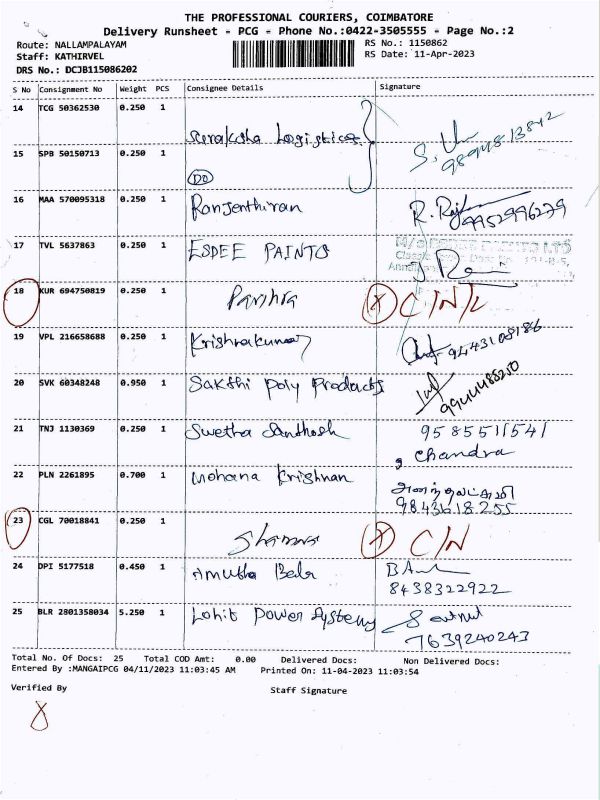 THE PROFESSIONAL COURIERS, COIMBATORE
Delivery Runsheet - PCG - Phone No.:0422-3505555 - Page No.:2
Route: NALLAMPALAYAM RS No.: 1150862
Staff: KATHIRVEL RS Date: 11-Apr-2023
DRS No.: DCJB115086202
S No Consignment No Weight PCS Consignee Details Signature
14 TCG 50362530 0.250 1
Suraksha Logistics
9894813842
15 SPB 50150713 0.250 1
DO
16 MAA 570095318 0.250 1 Ranjenthiran R. Raj
9952996279
17 TVL 5637863 0.250 1 ESDEE PAINTS
18 KUR 694750819 0.250 1 X C/N/L
19 VPL 216658688 0.250 1 Krishnakumar 9443108186
20 SVK 60348248 0.950 1 Sakthi Poly Products
9944488250
21 TNJ 1130369 0.250 1 Swetha Santhosh 9585511541
Chandra
22 PLN 2261895 0.700 1 Mohana Krishnan
9843618255
23 CGL 70018841 0.250 1
X C/N
24 DPI 5177518 0.450 1 Amutha
8438322922
25 BLR 2801358034 5.250 1 Lohit Power Systems
7639240243
Total No. Of Docs: 25 Total COD Amt: 0.00 Delivered Docs: Non Delivered Docs:
Entered By :MANGAIPCG 04/11/2023 11:03:45 AM Printed On: 11-04-2023 11:03:54
Verified By Staff Signature